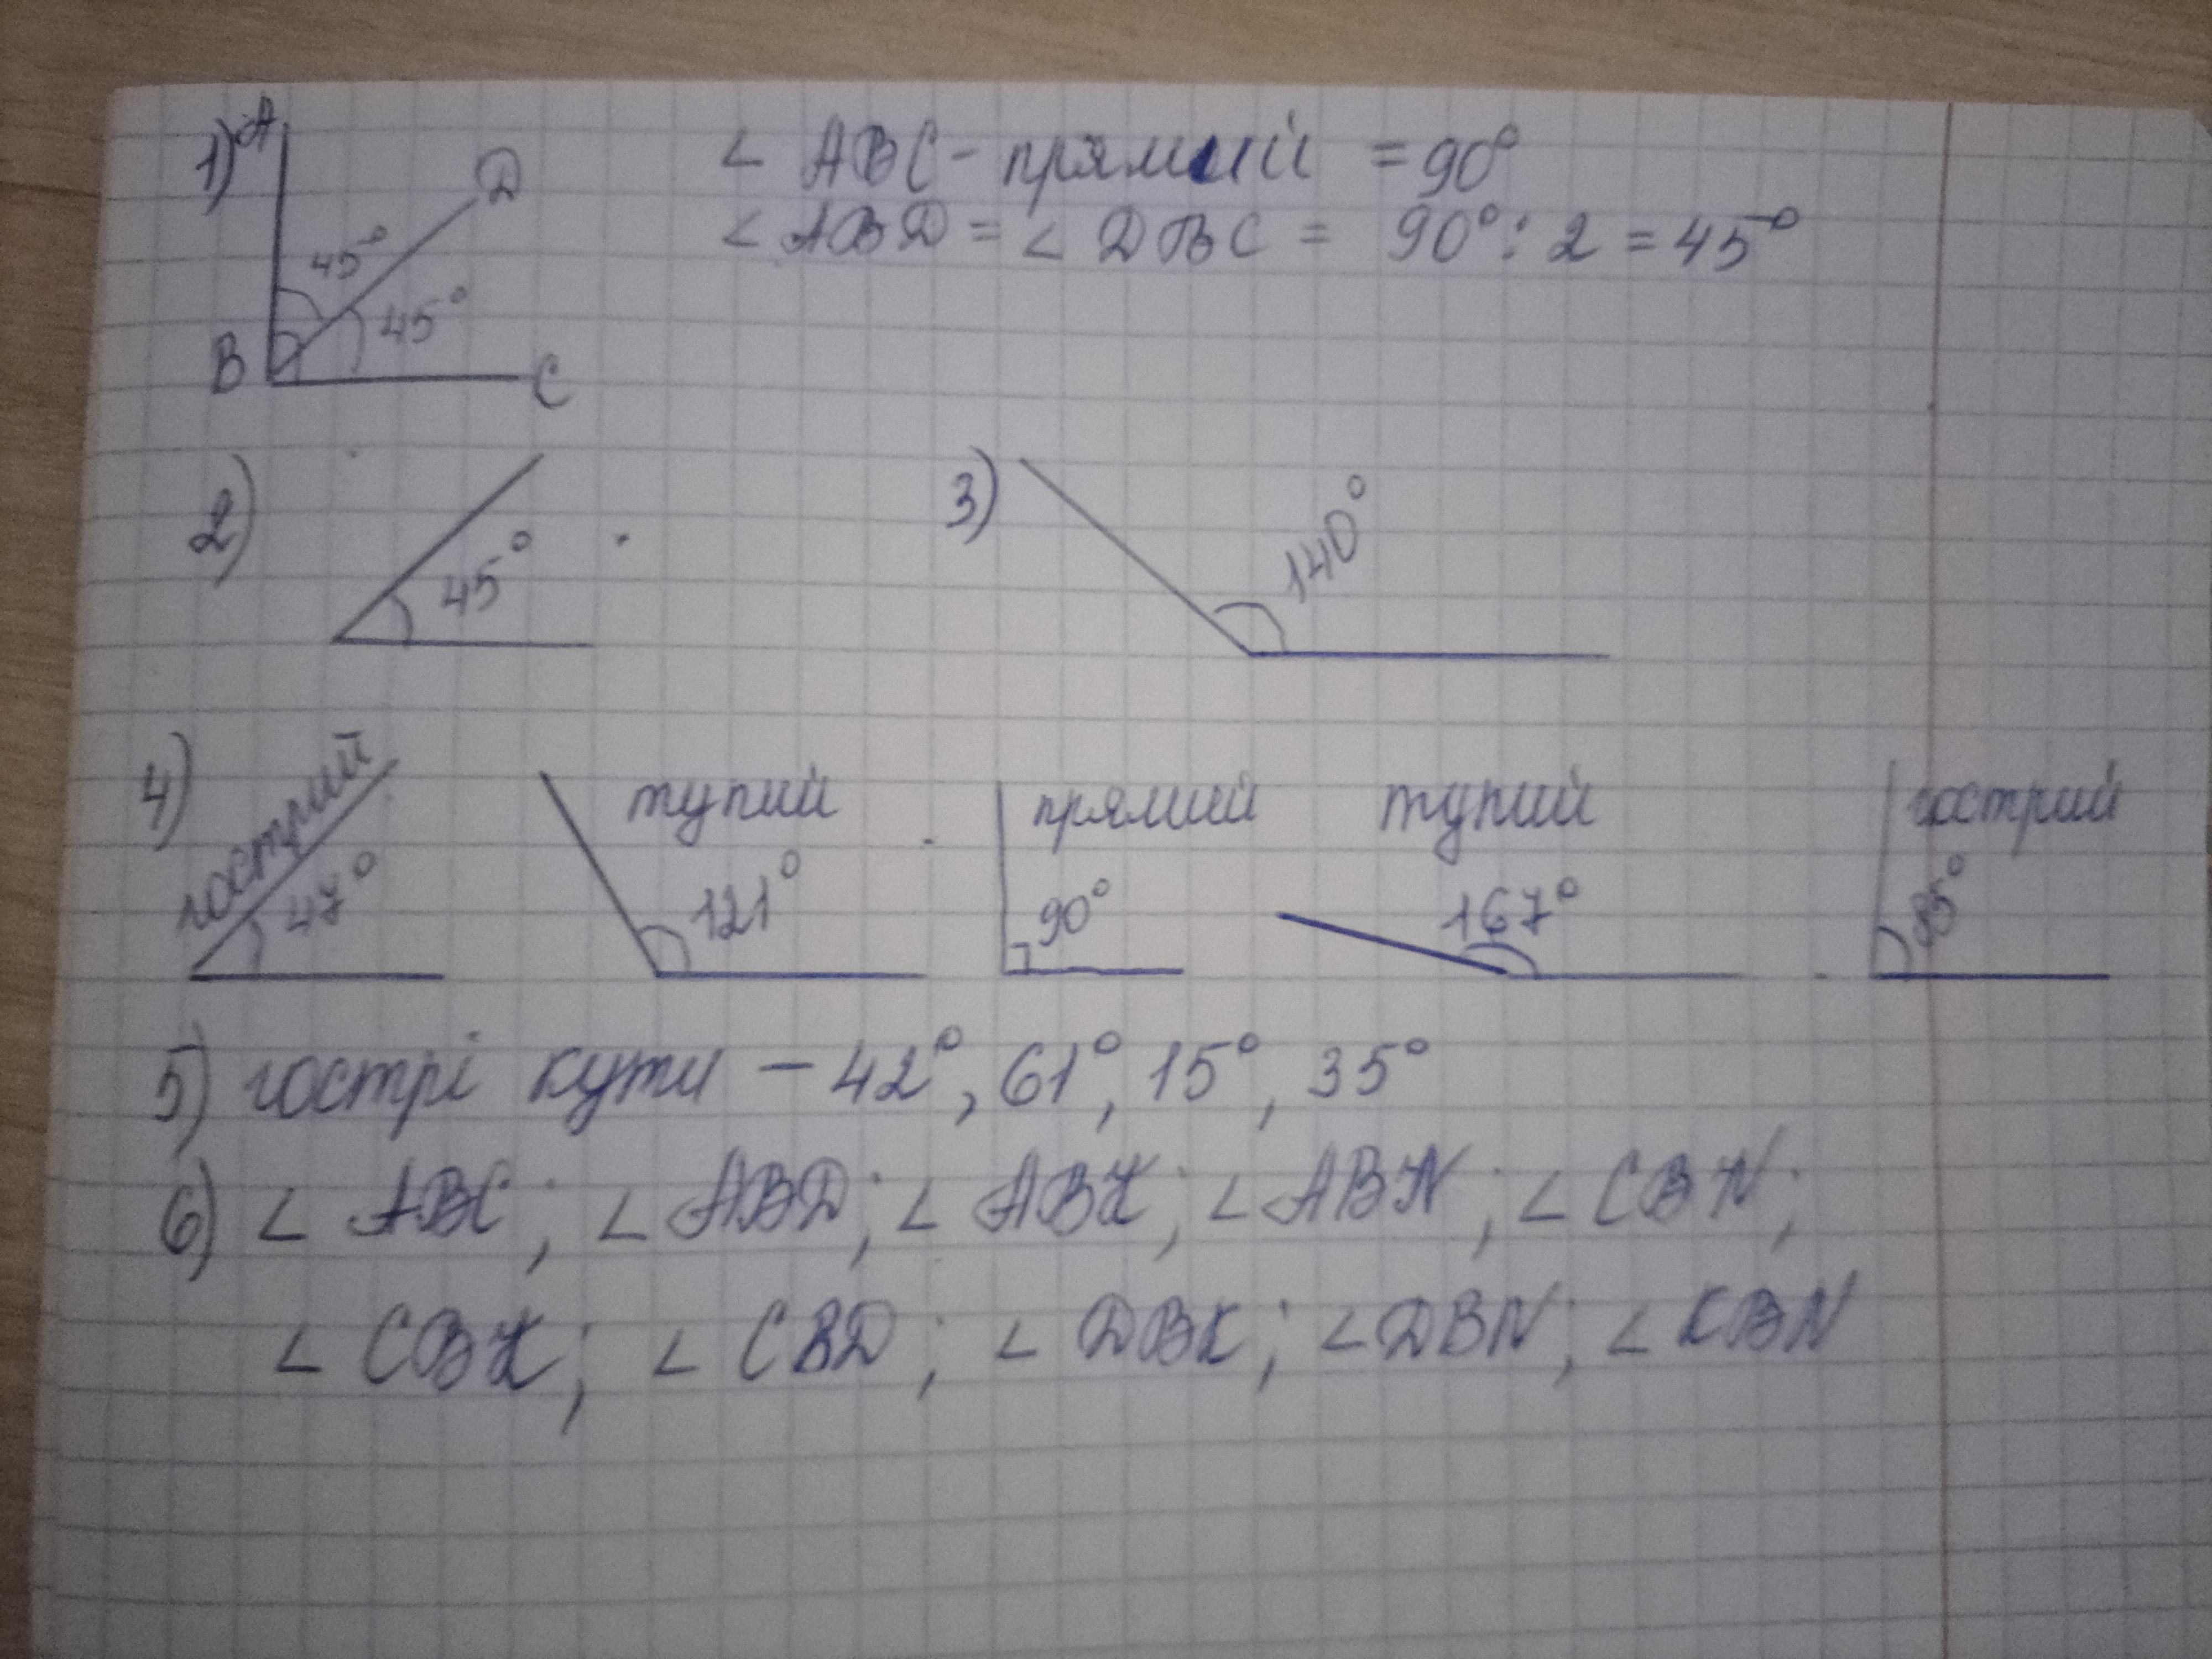 1) A D ∠ ABC - прямий = 90°
45° ∠ ABD = ∠ DBC = 90° : 2 = 45°
B 45° C
2) 45° 3) 140°
4) гострий 47° тупий 121° прямий 90° тупий 167° гострий 85°
5) гострі кути – 42°, 61°, 15°, 35°
6) ∠ ABC; ∠ ABD; ∠ ABK; ∠ ABN; ∠ CBN;
∠ CBK; ∠ CBD; ∠ DBK; ∠ DBN; ∠ KBN